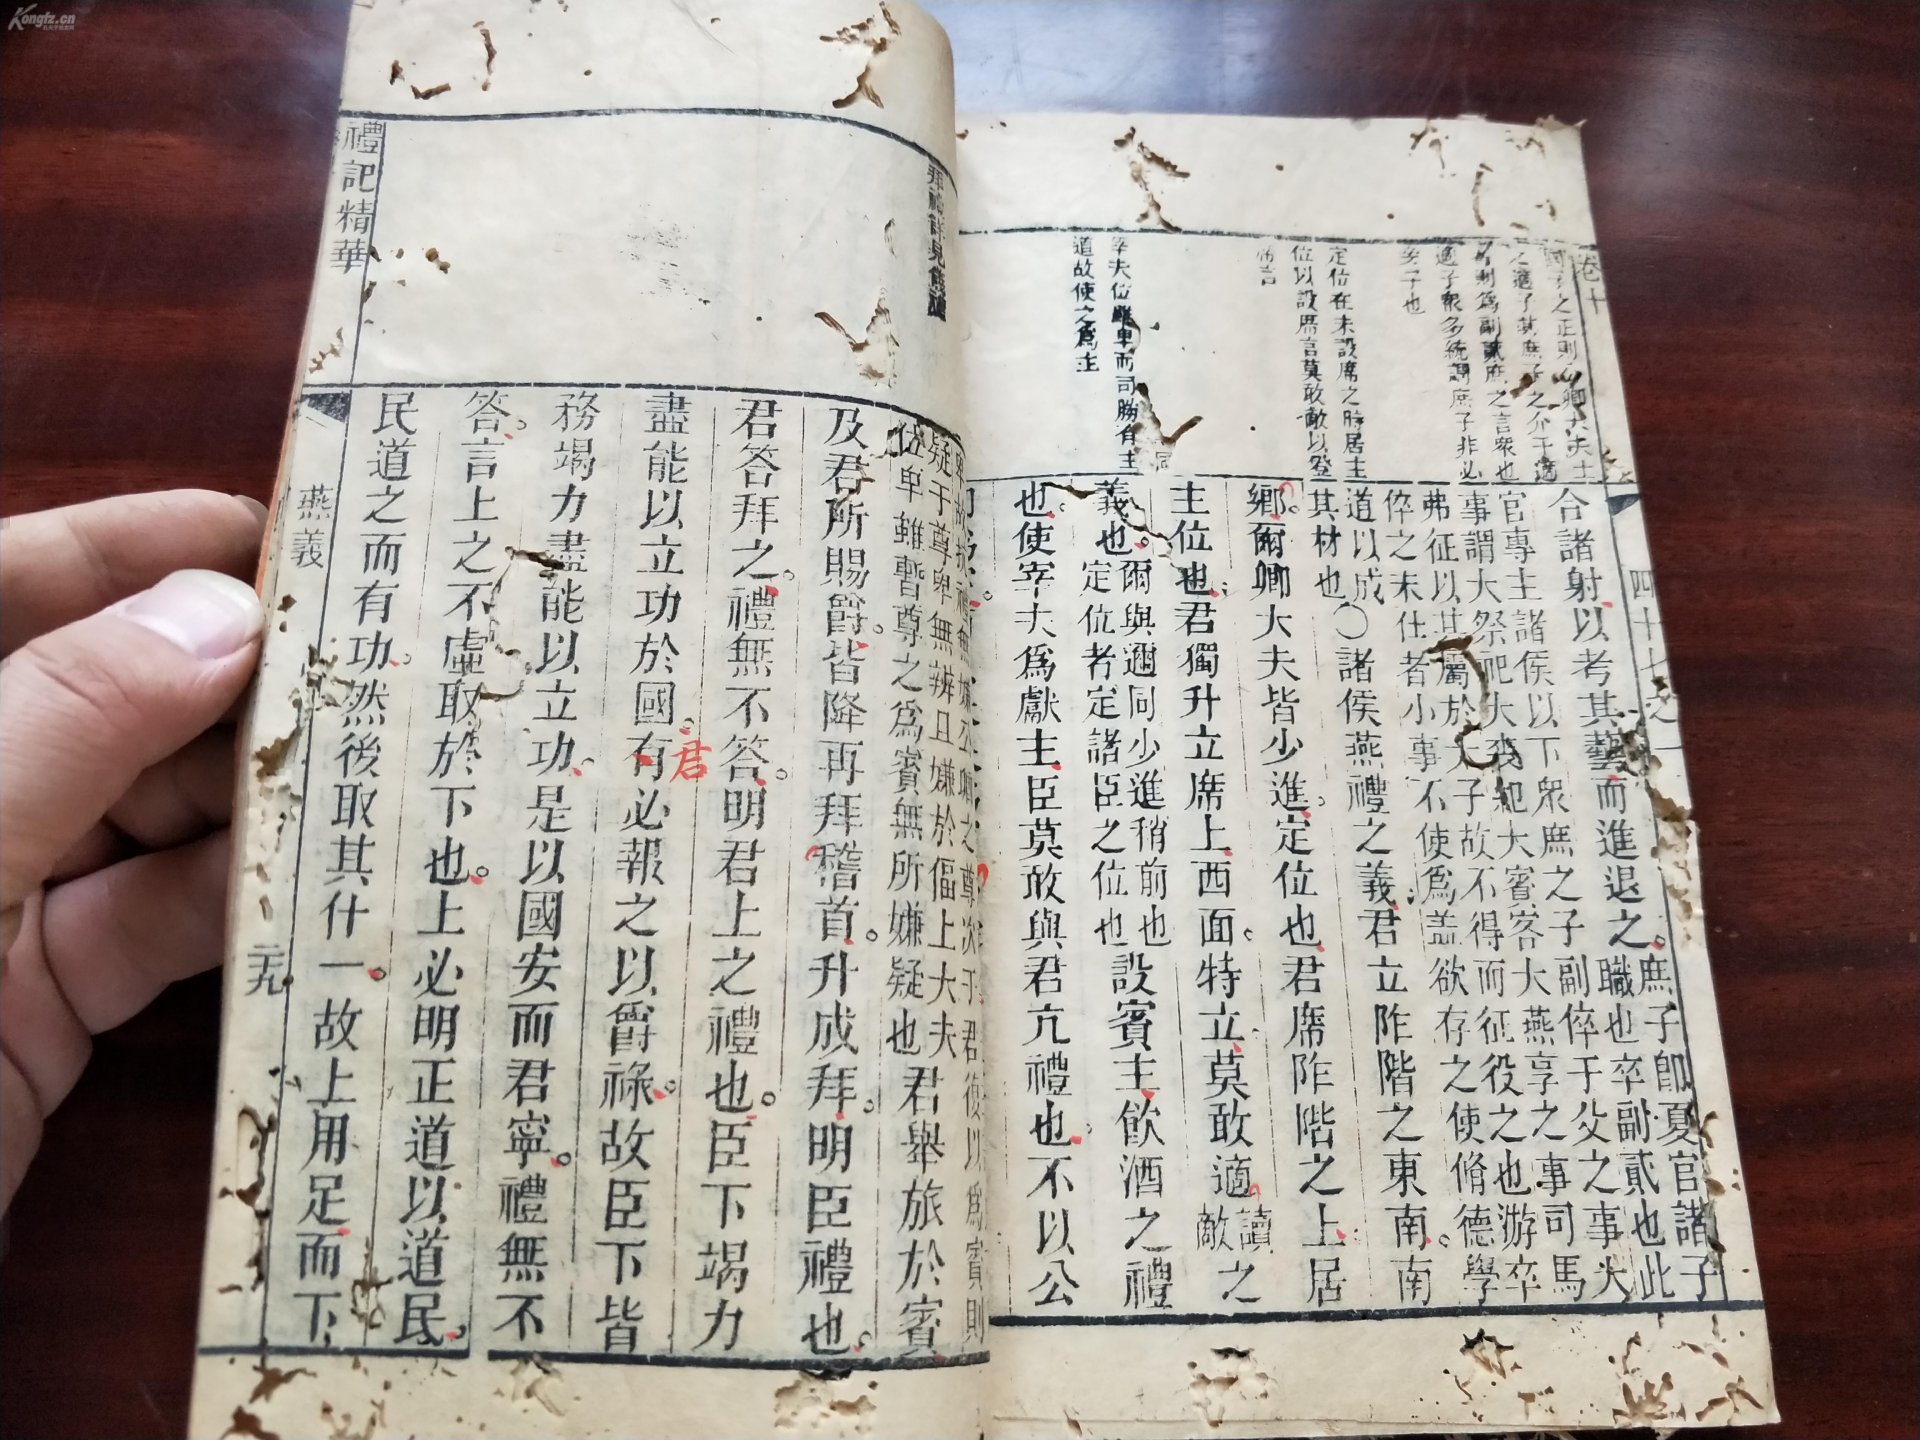 卷十
四十七之一
之正則
卿大夫士
之適子其庶子之介于適
子則爲副貳庶之言衆也
適子衆多統謂庶子非必
妾子也
定位在未設席之時居主
位以設席言莫敢敵以登
席言
宰夫位雖卑而司膳有主
道故使之爲主
合諸射以考其藝而進退之。庶子卽夏官諸子
職也卒副貳也此
官專主諸侯以下衆庶之子副倅于父之事大
事謂大祭祀大喪紀大賓客大燕享之事司馬
弗征以其屬於太子故不得而征役之也游卒
倅之未仕者小事不使爲盖欲存之使脩德學
道以成
其材也
○諸侯燕禮之義君立阼階之東南。南
鄉。爾卿大夫皆少進。定位也君席阼階之上居
主位也君獨升立席上西面。特立莫敢適讀敵之
義也。
爾與邇同少進稍前也
定位者定諸臣之位也
設賓主飲酒之禮
也。使宰夫爲獻主臣莫敢與君亢禮也。不以公
疑于尊卑無辨且嫌於偪上大夫
位卑雖暫尊之爲賓無所嫌疑也
君舉旅於賓
及君所賜爵。皆降再拜稽首。升成拜。明臣禮也。
君答拜之。禮無不答。明君上之禮也。臣下竭力
盡能以立功於國有必報之以爵祿。故臣下皆
君
務竭力盡能以立功。是以國安而君寧。禮無不
答。言上之不虛取於下也。上必明正道以道民。
民道之而有功。然後取其什一。故上用足而下
禮記精華
燕義
二十九
Kongfz.cn